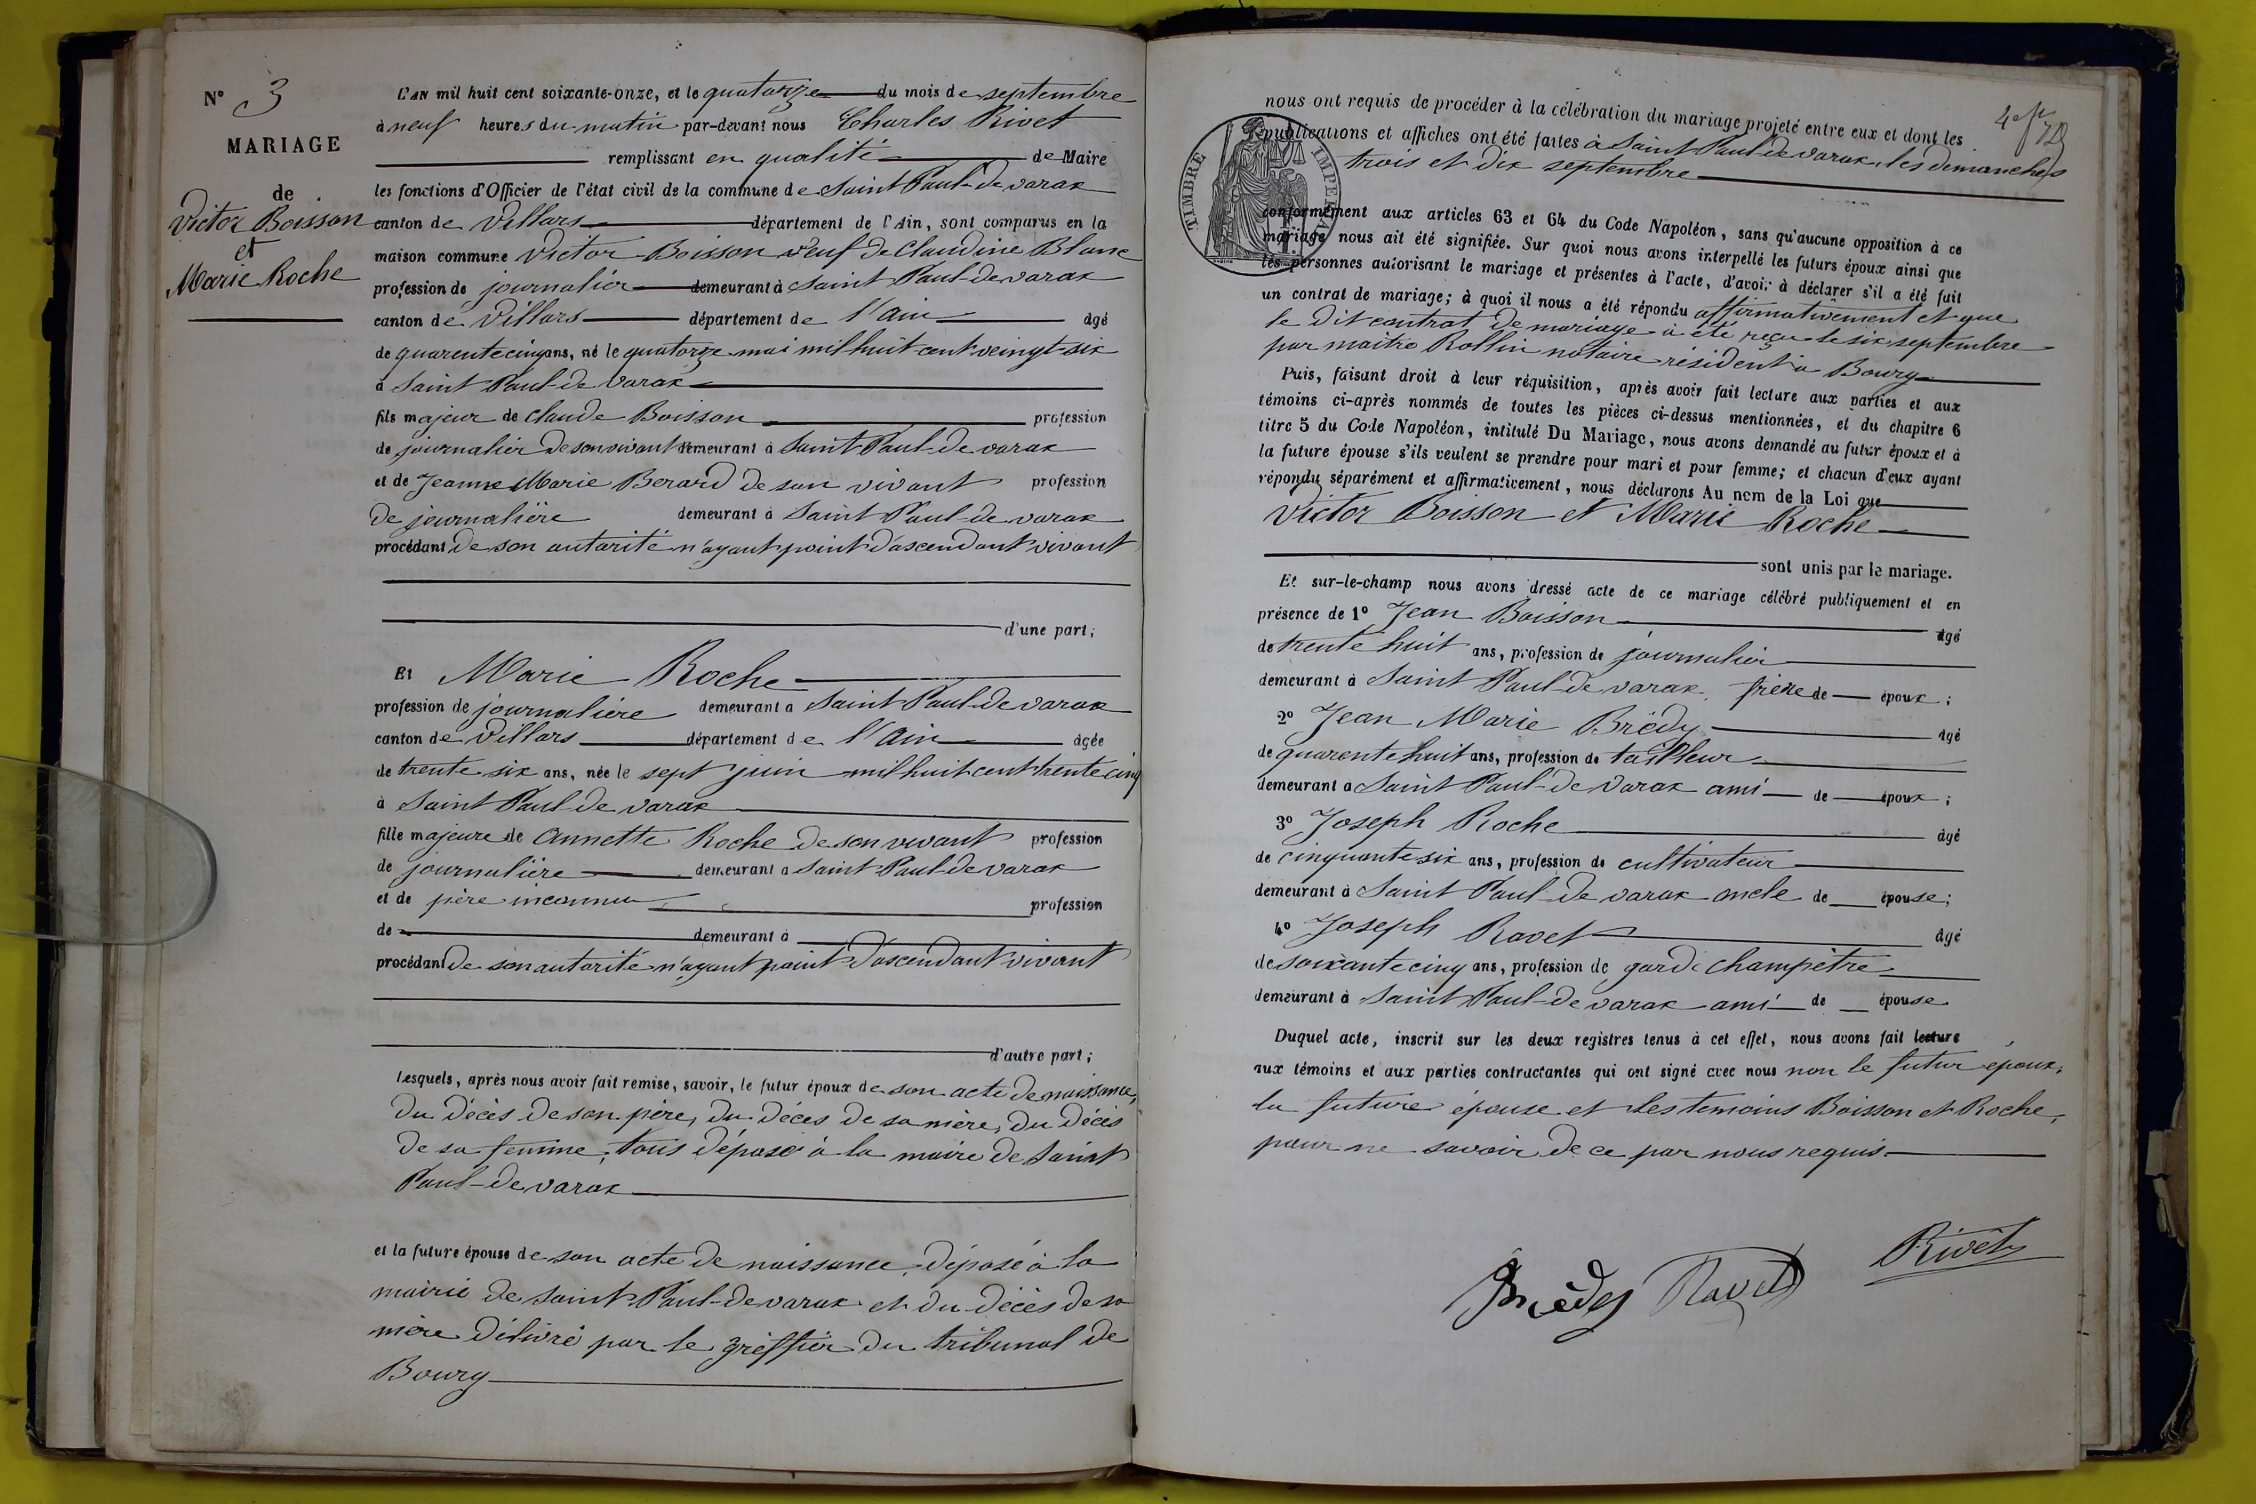 N° 3
MARIAGE
de
Victor Boisson
et
Marie Roche
L'AN mil huit cent soixante-onze, et le quatorze du mois de septembre
à neuf heures du matin par-devant nous Charles Rivet
remplissant en qualité de Maire
les fonctions d'Officier de l'état civil de la commune de Saint Paul-de varax
canton de Villars département de l'Ain, sont comparus en la
maison commune Victor Boisson veuf de Claudine Blanc
profession de journalier demeurant à Saint Paul-de varax
canton de Villars département de l'Ain âgé
de quarente cinq ans, né le quatorze mai mil huit cent veingt-six
à Saint Paul-de varax
fils majeur de Claude Boisson profession
de journalier de son vivant demeurant à Saint Paul-de varax
et de Jeanne Marie Berard de son vivant profession
de journalière demeurant à Saint Paul-de varax
procédant de son autorité n'ayant point d'ascendant vivant
d'une part;
Et Marie Roche
profession de journalière demeurant à Saint Paul-de varax
canton de Villars département de l'Ain âgée
de trente six ans, née le sept juin mil huit cent trente cinq
à Saint Paul-de varax
fille majeure de Annette Roche de son vivant profession
de journalière demeurant à Saint Paul-de varax
et de père inconnu profession
de demeurant à
procédant de son autorité n'ayant point d'ascendant vivant
d'autre part;
Lesquels, après nous avoir fait remise, savoir, le futur époux de son acte de naissance,
du décès de son père, du décès de sa mère, du décès
de sa femme, tous déposé à la mairie de Saint
Paul-de varax
et la future épouse de son acte de naissance, déposé à la
mairie de Saint Paul-de varax et du décès de sa
mère délivré par le greffier du tribunal de
Bourg
TIMBRE IMPERIAL
nous ont requis de procéder à la célébration du mariage projeté entre eux et dont les
publications et affiches ont été faites à Saint Paul-de varax, les dimanches
trois et dix septembre
conformément aux articles 63 et 64 du Code Napoléon, sans qu'aucune opposition à ce
mariage nous ait été signifiée. Sur quoi nous avons interpellé les futurs époux ainsi que
les personnes autorisant le mariage et présentes à l'acte, d'avoir à déclarer s'il a été fait
un contrat de mariage; à quoi il nous a été répondu affirmativement et que
le dit contrat de mariage a été reçu le six septembre
par maitre Rollin notaire résident à Bourg
Puis, faisant droit à leur réquisition, après avoir fait lecture aux parties et aux
témoins ci-après nommés de toutes les pièces ci-dessus mentionnées, et du chapitre 6
titre 5 du Code Napoléon, intitulé Du Mariage, nous avons demandé au futur époux et à
la future épouse s'ils veulent se prendre pour mari et pour femme; et chacun d'eux ayant
répondu séparément et affirmativement, nous déclarons Au nom de la Loi que
Victor Boisson et Marie Roche
sont unis par le mariage.
Et sur-le-champ nous avons dressé acte de ce mariage célébré publiquement et en
présence de 1° Jean Boisson âgé
de trente huit ans, profession de journalier
demeurant à Saint Paul-de varax, frère de époux;
2° Jean Marie Brédy âgé
de quarente huit ans, profession de tailleur
demeurant à Saint Paul-de varax ami de époux;
3° Joseph Roche âgé
de cinquante six ans, profession de cultivateur
demeurant à Saint Paul-de varax oncle de épouse;
4° Joseph Ravet âgé
de soixante cinq ans, profession de garde champêtre
demeurant à Saint Paul-de varax ami de épouse
Duquel acte, inscrit sur les deux registres tenus à cet effet, nous avons fait lecture
aux témoins et aux parties contractantes qui ont signé avec nous non le futur époux,
la future épouse et les temoins Boisson et Roche,
pour ne savoir de ce par nous requis
Rivet
Brédy Ravet